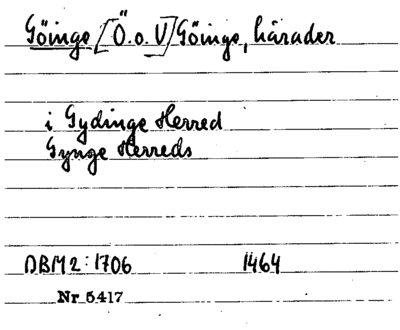 Göinge [Ö. o. V] Göinge, härader
i Gydinge Herred
Gynge Herreds
DBM 2: 1706 1464
Nr 5417